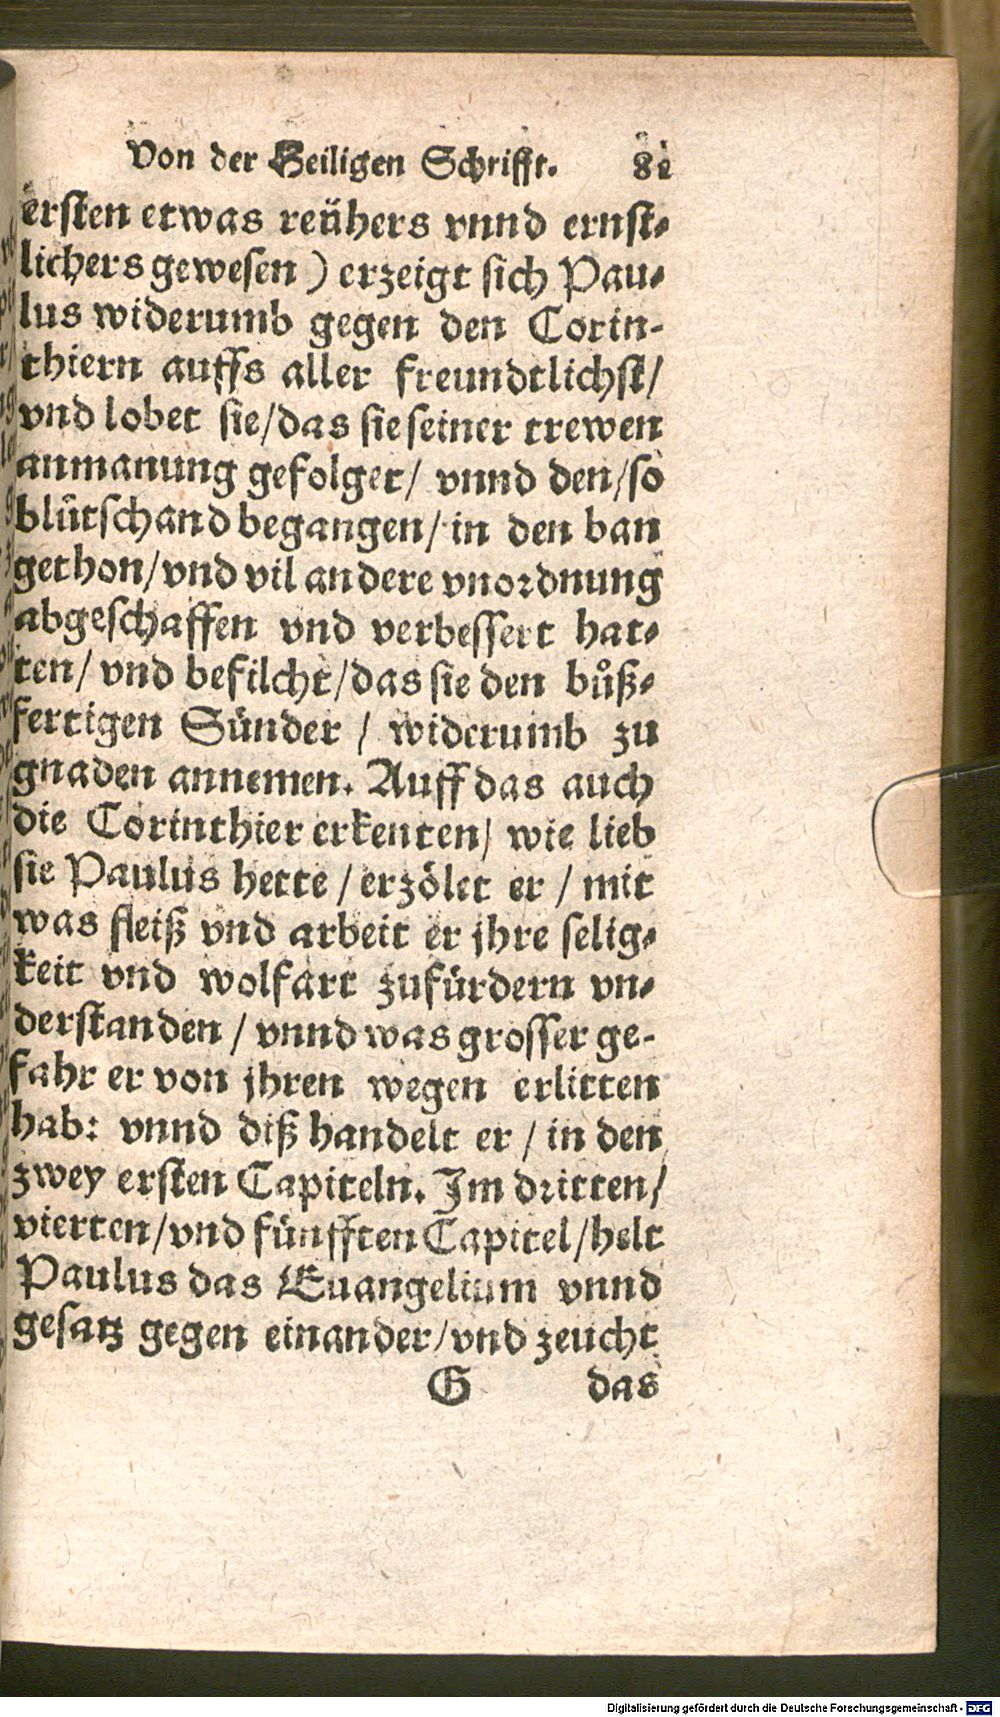 Von der Heiligen Schrifft. 81
ersten etwas reühers vnnd ernst⸗
lichers gewesen) erzeigt sich Pau⸗
lus widerumb gegen den Corin-
thiern auffs aller freundtlichst/
vnd lobet sie/das sie seiner trewen
anmanung gefolget/ vnnd den/so
blůtschand begangen/ in den ban
gethon/vnd vil andere vnordnung
abgeschaffen vnd verbessert hat⸗
ten/ vnd befilcht/das sie den bůß⸗
fertigen Sünder / widerumb zu
gnaden annemen. Auff das auch
die Corinthier erkenten/ wie lieb
sie Paulus hette / erzölet er / mit
was fleiß vnd arbeit er jhre selig⸗
keit vnd wolfart zufürdern vn⸗
derstanden / vnnd was grosser ge-
fahr er von jhren wegen erlitten
hab: vnnd diß handelt er / in den
zwey ersten Capiteln. Im dritten/
vierten/vnd fünfften Capitel/helt
Paulus das Euangelium vnnd
gesatz gegen einander/vnd zeucht
G das
Digitalisierung gefördert durch die Deutsche Forschungsgemeinschaft - DFG